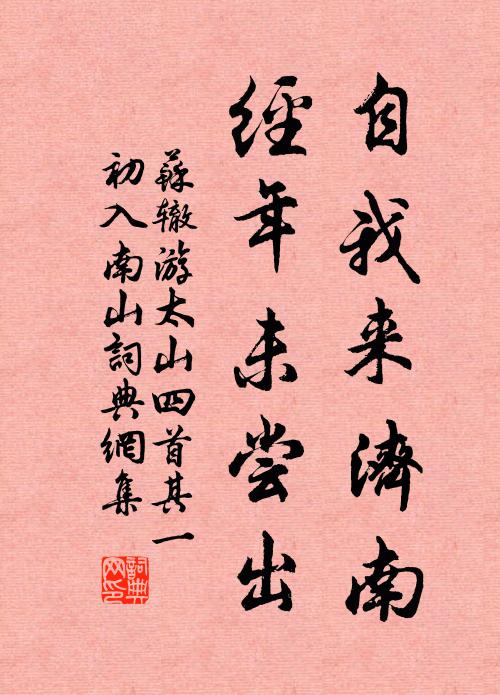 自我来濟南
經年未尝出
蘇辙游太山四首其一
初入南山詞典網集
詞典网印